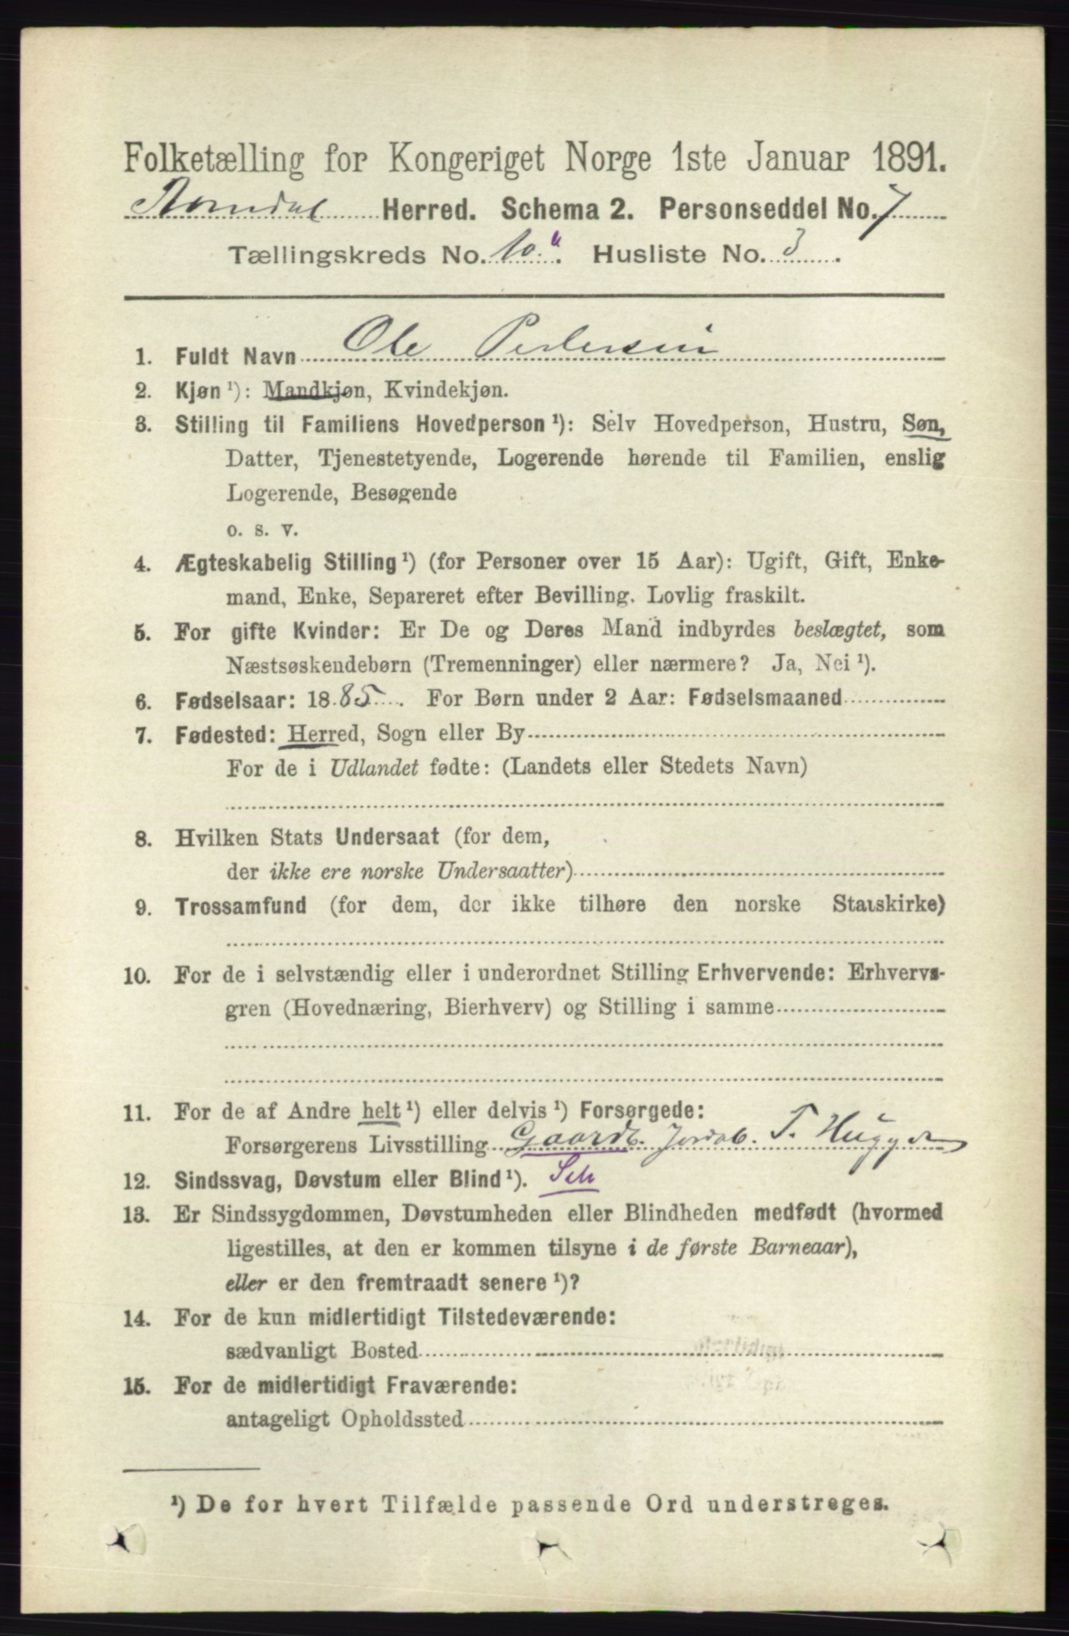 Folketælling for Kongeriget Norge 1ste Januar 1891.
Herred. Schema 2. Personseddel No. 7
Tællingskreds No. 10 a. Husliste No. 3.
1. Fuldt Navn Ole Pedersen
2. Kjøn ¹): Mandkjøn, Kvindekjøn.
3. Stilling til Familiens Hovedperson ¹): Selv Hovedperson, Hustru, Søn,
Datter, Tjenestetyende, Logerende hørende til Familien, enslig
Logerende, Besøgende
o. s. v.
4. Ægteskabelig Stilling ¹) (for Personer over 15 Aar): Ugift, Gift, Enke-
mand, Enke, Separeret efter Bevilling. Lovlig fraskilt.
5. For gifte Kvinder: Er De og Deres Mand indbyrdes beslægtet, som
Næstsøskendebørn (Tremenninger) eller nærmere? Ja, Nei ¹).
6. Fødselsaar: 1885. For Børn under 2 Aar: Fødselsmaaned
7. Fødested: Herred, Sogn eller By
For de i Udlandet fødte: (Landets eller Stedets Navn)
8. Hvilken Stats Undersaat (for dem,
der ikke ere norske Undersaatter)
9. Trossamfund (for dem, der ikke tilhøre den norske Statskirke)
10. For de i selvstændig eller i underordnet Stilling Erhvervende: Erhvervs-
gren (Hovednæring, Bierhverv) og Stilling i samme
11. For de af Andre helt ¹) eller delvis ¹) Forsørgede:
Forsørgerens Livsstilling Gaardb. Jordb. T. Hugger
12. Sindssvag, Døvstum eller Blind ¹).
13. Er Sindssygdommen, Døvstumheden eller Blindheden medfødt (hvormed
ligestilles, at den er kommen tilsyne i de første Barneaar),
eller er den fremtraadt senere ¹)?
14. For de kun midlertidigt Tilstedeværende:
sædvanligt Bosted
15. For de midlertidigt Fraværende:
antageligt Opholdssted
¹) De for hvert Tilfælde passende Ord understreges.